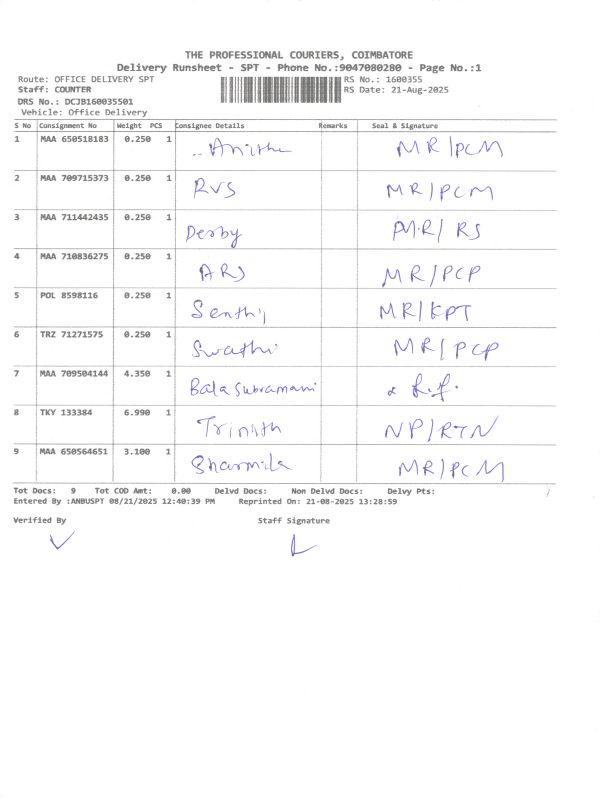 THE PROFESSIONAL COURIERS, COIMBATORE
Delivery Runsheet - SPT - Phone No.:9047080280 - Page No.:1
Route: OFFICE DELIVERY SPT RS No.: 1600355
Staff: COUNTER RS Date: 21-Aug-2025
DRS No.: DCJB160035501
Vehicle: Office Delivery
S No Consignment No Weight PCS Consignee Details Remarks Seal & Signature
1 MAA 650518183 0.250 1 Anitha MR/PCM
2 MAA 709715373 0.250 1 RVS MR/PCM
3 MAA 711442435 0.250 1 Derby M.R/ RS
4 MAA 710836275 0.250 1 ARS MR/PCP
5 POL 8598116 0.250 1 Senthil MR/KPT
6 TRZ 71271575 0.250 1 Swathi MR/PCP
7 MAA 709504144 4.350 1 Bala Subramani
8 TKY 133384 6.990 1 NP/RTN
9 MAA 650564651 3.100 1 Sharmila MR/PCM
Tot Docs: 9 Tot COD Amt: 0.00 Delvd Docs: Non Delvd Docs: Delvy Pts:
Entered By :ANBUSPT 08/21/2025 12:40:39 PM Reprinted On: 21-08-2025 13:28:59
Verified By Staff Signature